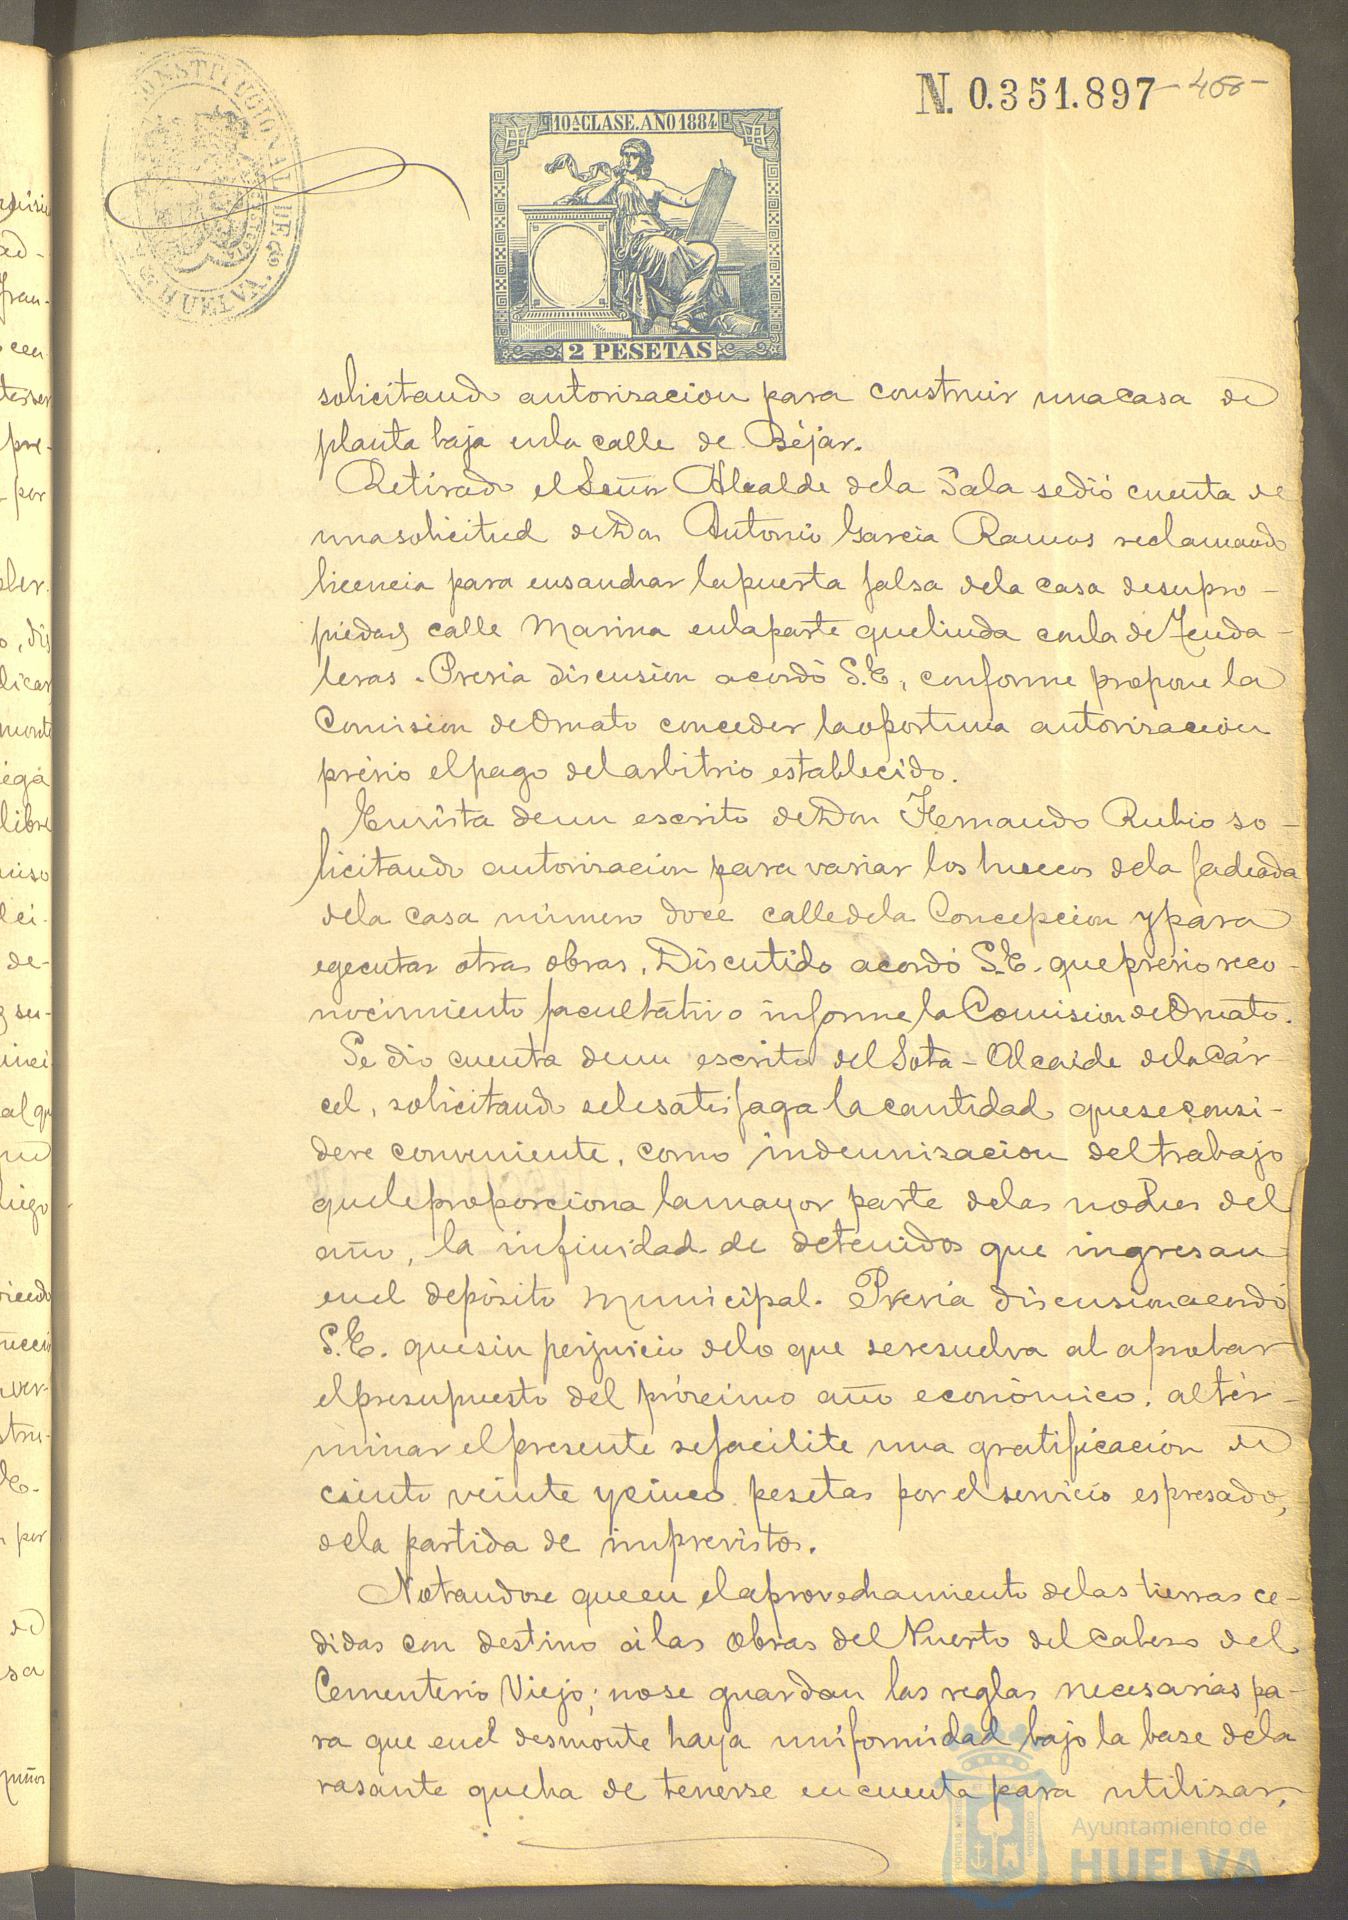 N. 0.351.897
CONSTITUCIONAL DE
HUELVA
10ª CLASE. AÑO 1884
2 PESETAS
solicitando autorizacion para construir una casa de
planta baja en la calle de Béjar.
Retirado el Señor Alcalde de la Sala se dió cuenta de
una solicitud de Don Antonio Garcia Ramos reclamando
licencia para ensanchar la puerta falsa de la casa de su pro-
piedad calle Marina en la parte que linda con la de Tenda-
leras. Previa discusion acordó S.E, conforme propone la
Comision de Ornato conceder la oportuna autorizacion
prévio el pago del arbitrio establecido.
En vista de un escrito de Don Hernando Rubio so-
licitando autorizacion para variar los huecos de la fachada
de la casa número doce calle de la Concepcion y para
egecutar otras obras. Discutido acordó S.E. que prévio reco-
nocimiento facultativo informe la Comision de Ornato.
Se dio cuenta de un escrito del Sota-Alcaide de la Cár-
cel, solicitando se le satisfaga la cantidad que se consi-
dere conveniente, como indemnizacion del trabajo
que le proporciona la mayor parte de las noches del
año, la infinidad de detenidos que ingresan
en el depósito municipal. Previa discusion acordó
S.E. que sin perjuicio de lo que se resuelva al aprobar
el presupuesto del próximo año económico, al tér-
minar el presente se facilite una gratificación de
ciento veinte y cinco pesetas por el servicio espresado,
de la partida de imprevistos.
Notandose que en el aprovechamiento de las tierras ce-
didas con destino á las obras del Puerto del cabezo del
Cementerio Viejo; no se guardan las reglas necesarias pa-
ra que en el desmonte haya uniformidad bajo la base de la
rasante que ha de tenerse en cuenta para utilizar,
Ayuntamiento de
HUELVA